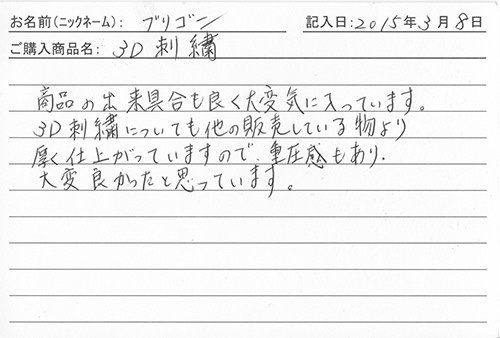 お名前(ニックネーム): ブリゴン 記入日:2015年3月8日
ご購入商品名: 3D刺繍
商品の出来具合も良く大変気に入っています。
3D刺繍についても他の販売している物より
厚く仕上がっていますので、重圧感もあり、
大変良かったと思っています。